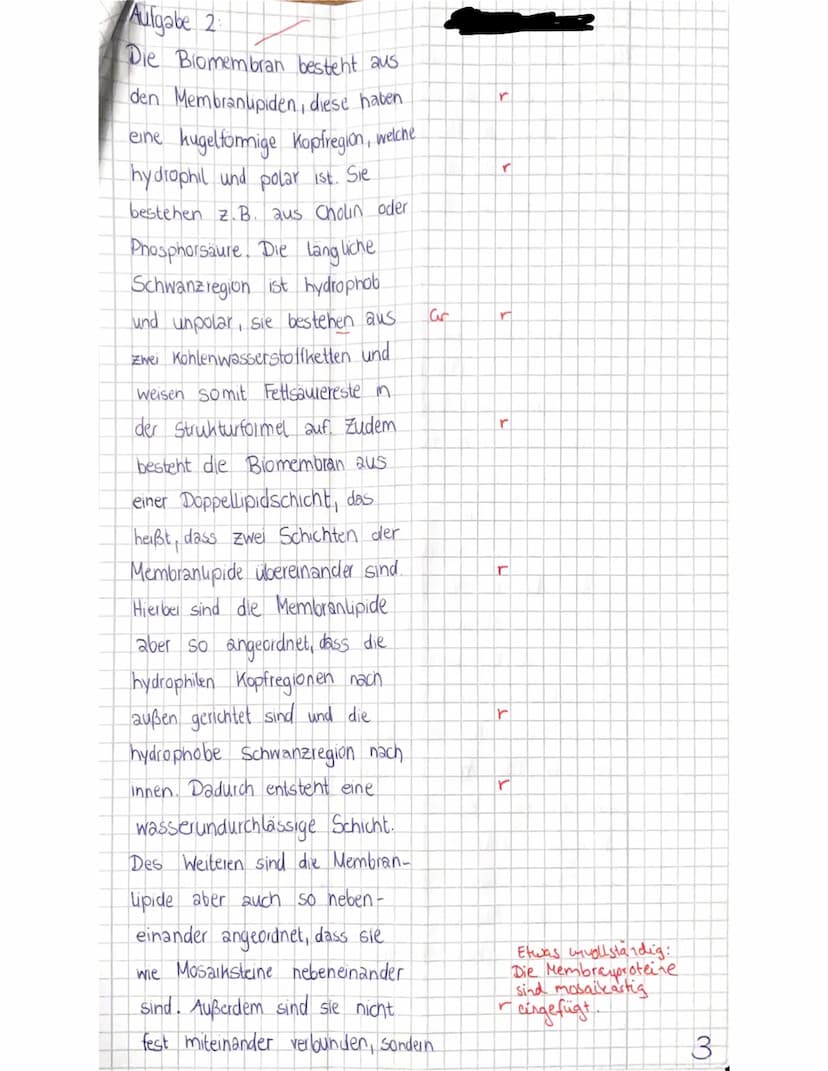 Aufgabe 2:
Die Biomembran besteht aus
den Membranlipiden, diese haben r
eine kugelförmige Kopfregion, welche
hydrophil und polar ist. Sie r
bestehen z.B. aus Cholin oder
Phosphorsäure. Die längliche
Schwanzregion ist hydrophob
und unpolar, sie bestehen aus Gr r
zwei Kohlenwasserstoffketten und
weisen somit Fettsäurereste in
der Strukturformel auf. Zudem r
besteht die Biomembran aus
einer Doppellipidschicht, das
heißt, dass zwei Schichten der
Membranlipide übereinander sind. r
Hierbei sind die Membranlipide
aber so angeordnet, dass die
hydrophilen Kopfregionen nach
außen gerichtet sind und die r
hydrophobe Schwanzregion nach
innen. Dadurch entsteht eine r
wasserundurchlässige Schicht.
Des Weiteren sind die Membran-
lipide aber auch so neben-
einander angeordnet, dass sie
wie Mosaiksteine nebeneinander
sind. Außerdem sind sie nicht
fest miteinander verbunden, sondern
Etwas unvollständig:
Die Membranproteine
sind mosaikartig
r eingefügt.
3